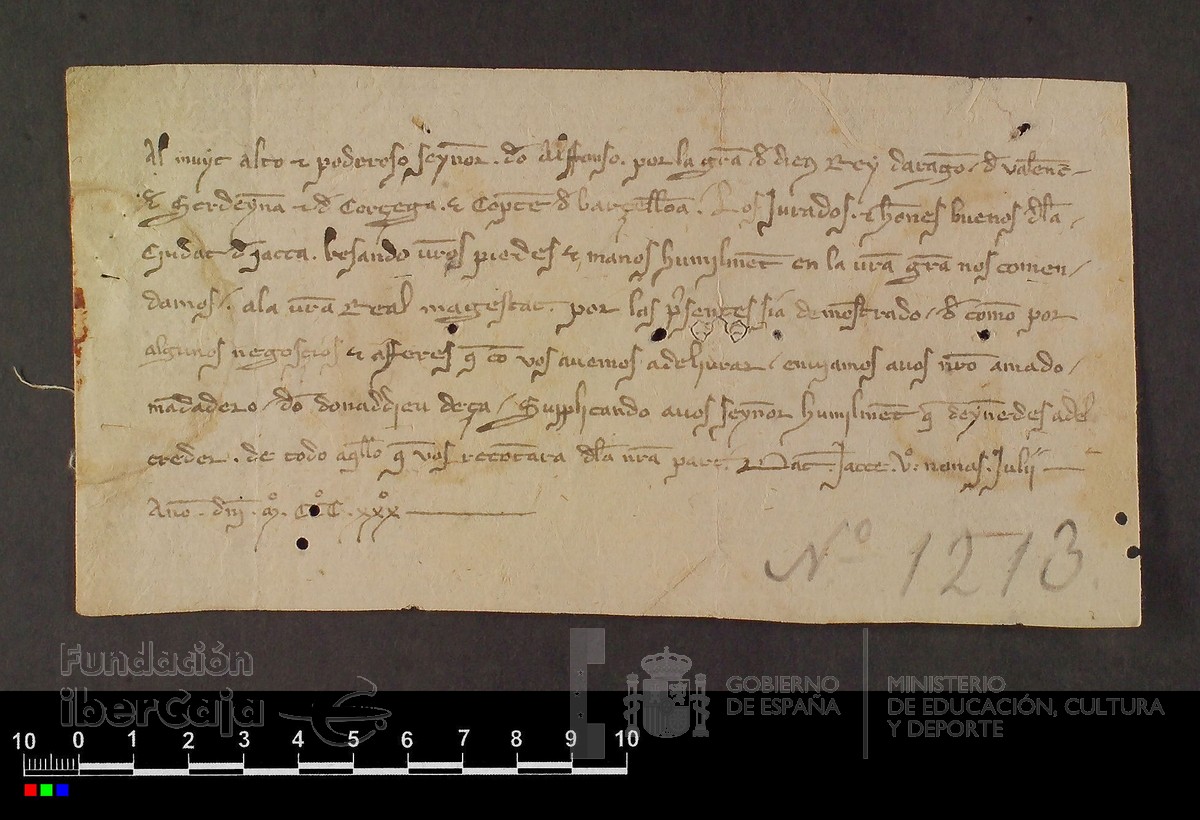 Al muyt alto et poderoso seynor. dō Alffonso. por la gr̄a d̄ dieu Rey daragō / d̄ valenc̄
d̄ Serdeyna et d̄ Corcega. et Cōpte d̄ barçellōa. Los Jurados. et hōnes buenos dl̄a
Ciudat d̄ Jacca. besando vr̄os piedes et manos humilmēt en la vr̄a gr̄a nos comen/
damos / . ala vr̄a Real magestat. por las p̄sentes sia demostrado / d̄ como por
algunos negoscios et afferes q̄ cō vos auemos adeliurar / enuiamos auos nr̄o amado /
mādadero / dō donadd̄ieu deça / Supplicando auos seynor humilmēt q̄ deynedes adel
creder. de todo aq̄llo q̄ vos recōtara dl̄a nr̄a part. Dat. Jacce. Vº. nonas. Julii
Anō. dn̄i. mº. CCCº. xxxº
Nº 1213
Fundación
iberCaja
GOBIERNO
DE ESPAÑA
MINISTERIO
DE EDUCACIÓN, CULTURA
Y DEPORTE
10 0 1 2 3 4 5 6 7 8 9 10